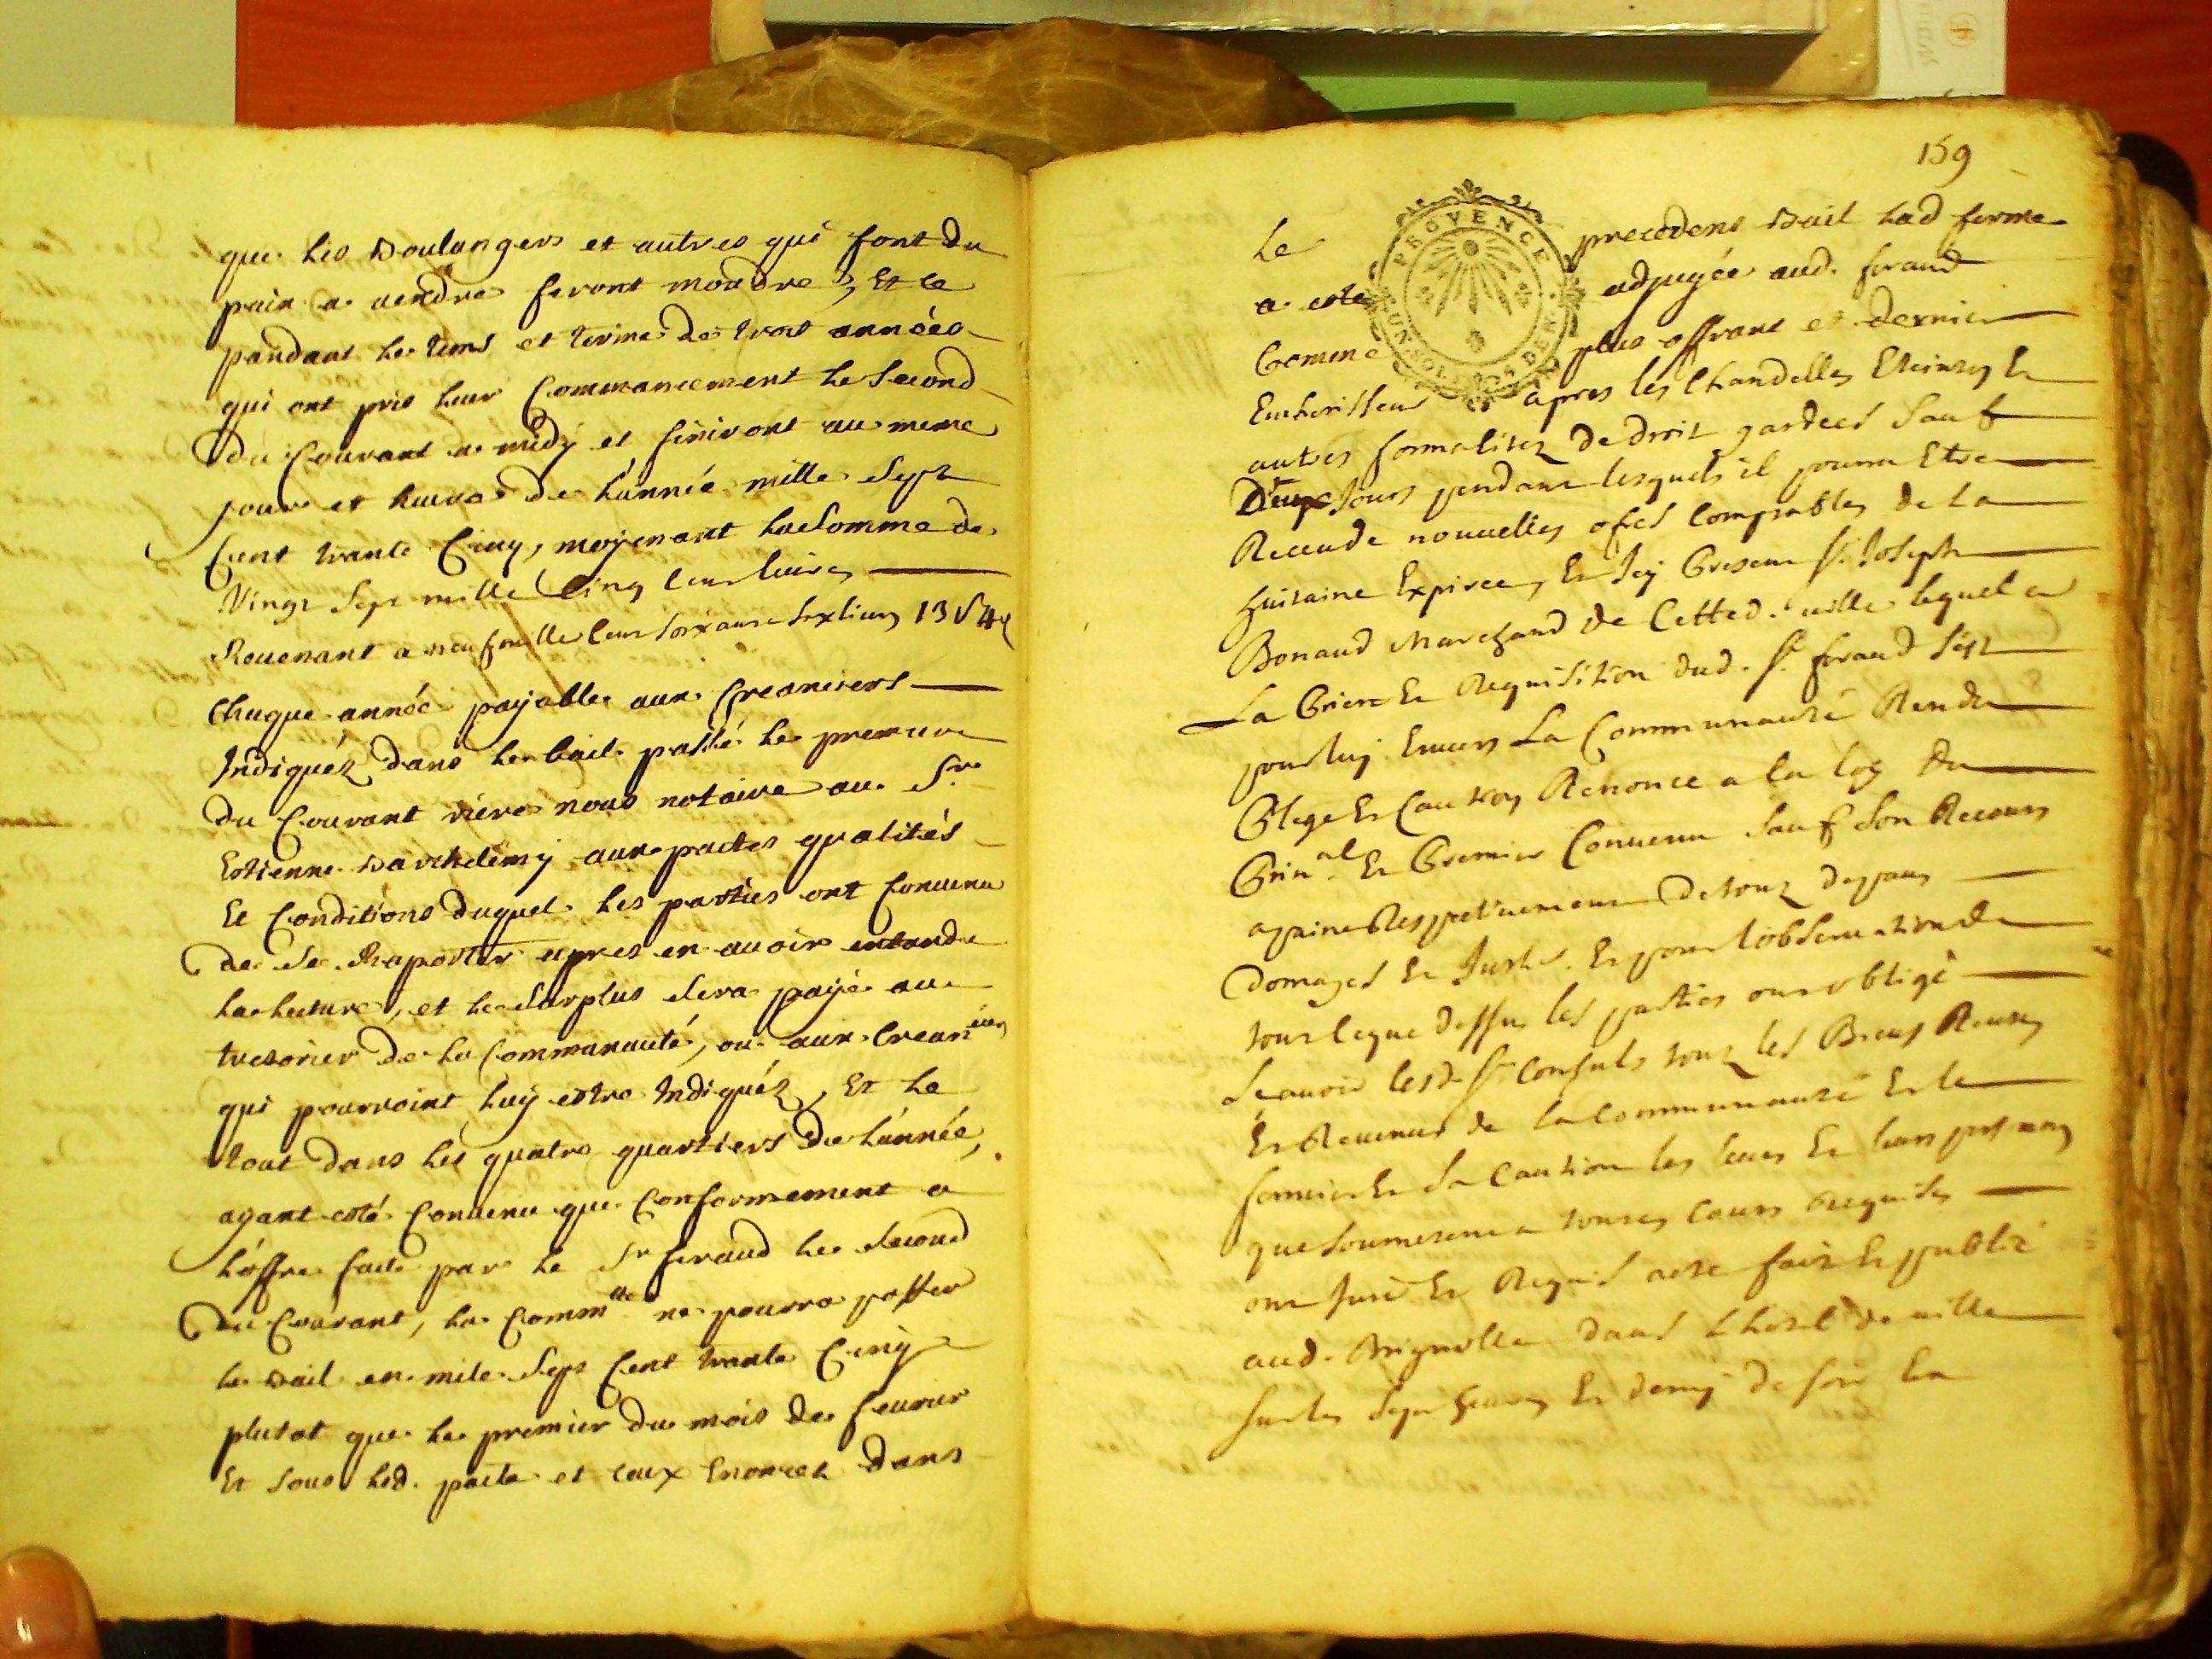 que les Boulangers et autres qui font du
pain a vendre feront moudre, Et ce
pandant le tems et terme de trois années
qui ont pris leur Commancement le second
du Courant a midy et finiront au meme
jour et heure de l'année mille Sept
Cent trante Cinq, moyenant la Somme de
Vingt Sept mille Cinq Cens livres
Revenant a neuf mille Cent soixante six livres 13 s 4 d
Chaque année payable aux Creanciers
Indiqués dans le bail passé le premier
du Courant riere nous notaire au Sr.
Estienne Barthelemy aux pactes qualités
Et Conditions duquel les parties ont Convenu
de Se Raporter apres en avoir entandu
la lecture, et le Surplus Sera payé au
tresorier de la Communauté, ou aux Creanciers
qui pourroint luy estre Indiqués, Et le
tout dans les quatre quartiers de l'année,
ayant esté Convenu que Conformement a
l'offre faite par le Sr feraud le Second
du Courant, la Commté ne pourra passer
le Bail en mile Sept Cent trante Cinq
plutot que le premier du mois de fevrier
Et Sous led. pacte et Ceux Enoncez dans
159
Le precedent Bail lad ferme
PROVENCE
UN SOL DEN.
a esté adjugée aud. feraud
Comme plus offrant et dernier
Encherisseur apres les Chandelles Eteintes Et
autres formalitez de droit gardées Sauf
Deux Jours pendant lesquels il pourra Etre
Receu de nouvelles ofres Comptables de la
huitaine Expirée, Et Icy Present Sr. Joseph
Bonaud Marchand de Cette d. ville lequel a
La Priere Et Requisition dud. Sr. feraud S'est
pour luy Envers La Communauté Rendu
Plege Et Caution Renonce a la loy Du
Prin.al Et Premier Convenu Sauf Son Recours
a paine Respectivement de tous depans
Domages Et Intts. Et pour l'observation de
tout le que dessus les parties ont obligé
Scavoir lesd. Srs Consuls tous les Biens Rentes
Et Revenus de la Communauté Et le
fermier Et Sa Caution les leurs Et leurs
que Soumettent a toutes Cours Requises
ont Juré Et Requis acte fait Et publié
aud. Brignolle dans L'hotel de ville
Sur les Sept heures Et demy de soir En